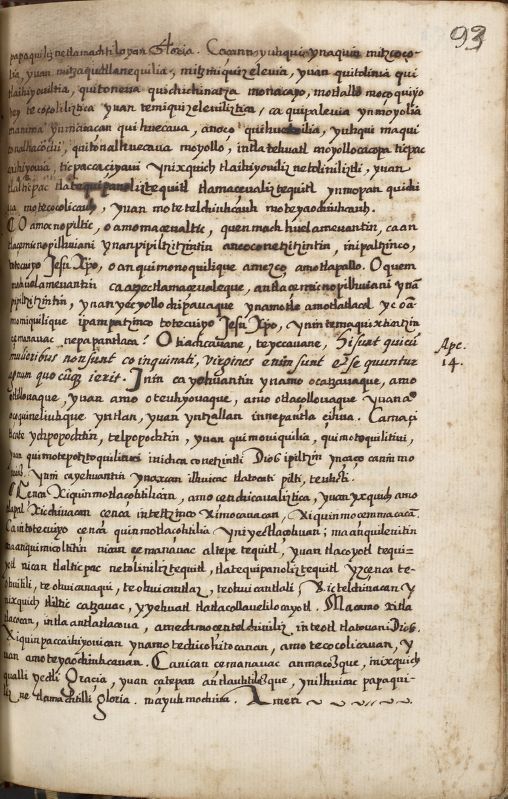 93
papaquiliz netlamachtiloyan Gloria. Ca çan no yuhqui ynaquin mitzcoco-
lia, yuan mitzaqualtlanequilia, mitzmiquizelevia, yuan quitolinia qui
tlaihiyoviltia, quitoneua quichichinatza monacayo, motlallo moçoquiyo
tecocoliliztica yuan temiquizeleviliztica, ca quipaleuia ynmoyolia
manima ynmiciuacan quihuecaua, anoço yuhqui maqui
quitonaltiuecaua moyollo, intla tehuatl moyollocacopa ticpac
caihiyouia, ticpaccaçiyaui ynixquich tlaihiyouiliz netoliniliztli, yuan
tlalticpac tlatequipanoliztequitl tlamaceualiztequitl ynmopan quichi
ua motecocolicauh, yuan motetelchiuhcauh moteyaochiuhcauh.
O amoxnopiltic, o amomaceualtic, quenmach huel amevantin, ca an
tlaçomicnopilhuiani ynanpipiltzitzintin anoconetzitzintin, inipaltzinco,
totecuiyo Jesu Xpo, o anquimonoquilique amezço amotlapallo. O quem
mach uel amevantin ca atzectlamaceualeque, antlaçomicnopilhuiani ynā
pipiltzitzintin, ynanyecyollochipauaque ynamotle amotlatlacol yc oā
moniquilique ipampatzinco totecuiyo Jesu Xpo, ynin temaquixtiatzin
cemanauac nepapantlaca? O tiachcauane, teyccauane, Hi sunt qui cū
mulieribus non sunt coinquinati, virgines enim sunt et se quuntur
agnum quocūq; ierit. Inin ca yehuantin ynamo ocatzauaque, amo
Apc.
14.
otlilouaque, yuan amo oteuhyouaque, amo otlacollouaque yuan aº
oquineliuhque yntlan, yuan yntzallan innepantla cihua. Ca maçi
ticate ychpopochtin, telpopochtin, yuan quimoviquilia, quimotoquilitiui,
yuan quimotepotztoquilitiui inichcaconetzintli Dios ipiltzin yncaço canin mo
uicas. Ynin ca yehuantin ynaxcan ilhuicac tlatocati pilti, teuhti.
Cenca xiquinmotlaçohtilican, amo çenchicaualiztica, yuan yxquich amo
tlapal xicchivacan cenca intetzinco ximocanacan, xiquinmocemmacacā.
Ca in totecuiyo cenca quinmotlaçohtilia yniyectlaçohuan; maanquileuitin
maanquimicoltitin nican cemanauac altepetequitl, yuan tlacoyotl tequi-
yotl nican tlalticpac netoliniliztequitl, tlatequipanoliztequitl yzcenca te-
ohuitili, teohuicanaqui, teohuicantlaz teohuicantlali. Xictelchiuacan y
nixquich tliltic catzauac, yyehuatl tlatlacollauelilocayotl. Macamo xitla
tlacocan, intla antlatlacoua, amechmocentelchiuiliz inteotl tlatouani Dios.
Xiquinpaccaihiyouican ynamotechicohitocauan, amotecocolicauan, y
uan amoteyaochiuhcauan. Ca nican cemanauac anmacozque, inixquich
qualli yectli Gracia, yuan catepan antlauhtilozque, ynilhuicac papaqui-
liz netlamachtilli gloria. mayuh mochiua. Amen